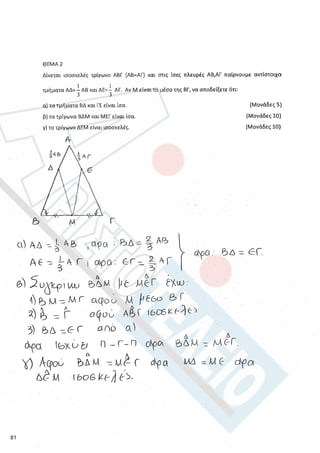 ΘΕΜΑ 2
Δίνεται ισοσκελές τρίγωνο ΑΒΓ (ΑΒ=ΑΓ) και στις ίσες πλευρές ΑΒ,ΑΓ παίρνουμε αντίστοιχα
τμήματα ΑΔ= 1/3 ΑΒ και ΑΕ= 1/3 ΑΓ. Αν Μ είναι το μέσο της ΒΓ, να αποδείξετε ότι:
α) τα τμήματα ΒΔ και ΓΕ είναι ίσα. (Μονάδες 5)
β) τα τρίγωνα ΒΔΜ και ΜΕΓ είναι ίσα. (Μονάδες 10)
γ) το τρίγωνο ΔΕΜ είναι ισοσκελές. (Μονάδες 10)
Α
1/3 ΑΒ 1/3 ΑΓ
Δ Ε
Β Μ Γ
α) ΑΔ = 1/3 ΑΒ , αρα : ΒΔ = 2/3 ΑΒ
ΑΕ = 1/3 ΑΓ , αρα : ΕΓ = 2/3 ΑΓ } αρα: ΒΔ = ΕΓ.
β) Συγκρινω ΒΔΜ με ΜΕΓ έχω:
1) ΒΜ = ΜΓ αφού Μ μέσο ΒΓ
2) Β̂ = Γ̂ αφού ΑΒΓ ισοσκελές
3) ΒΔ = ΕΓ από α)
άρα ισχύει Π-Γ-Π άρα ΒΔΜ = ΜΕΓ.
γ) Αφού ΒΔΜ = ΜΕΓ άρα ΜΔ = ΜΕ άρα
ΔΕΜ ισοσκελές.
81